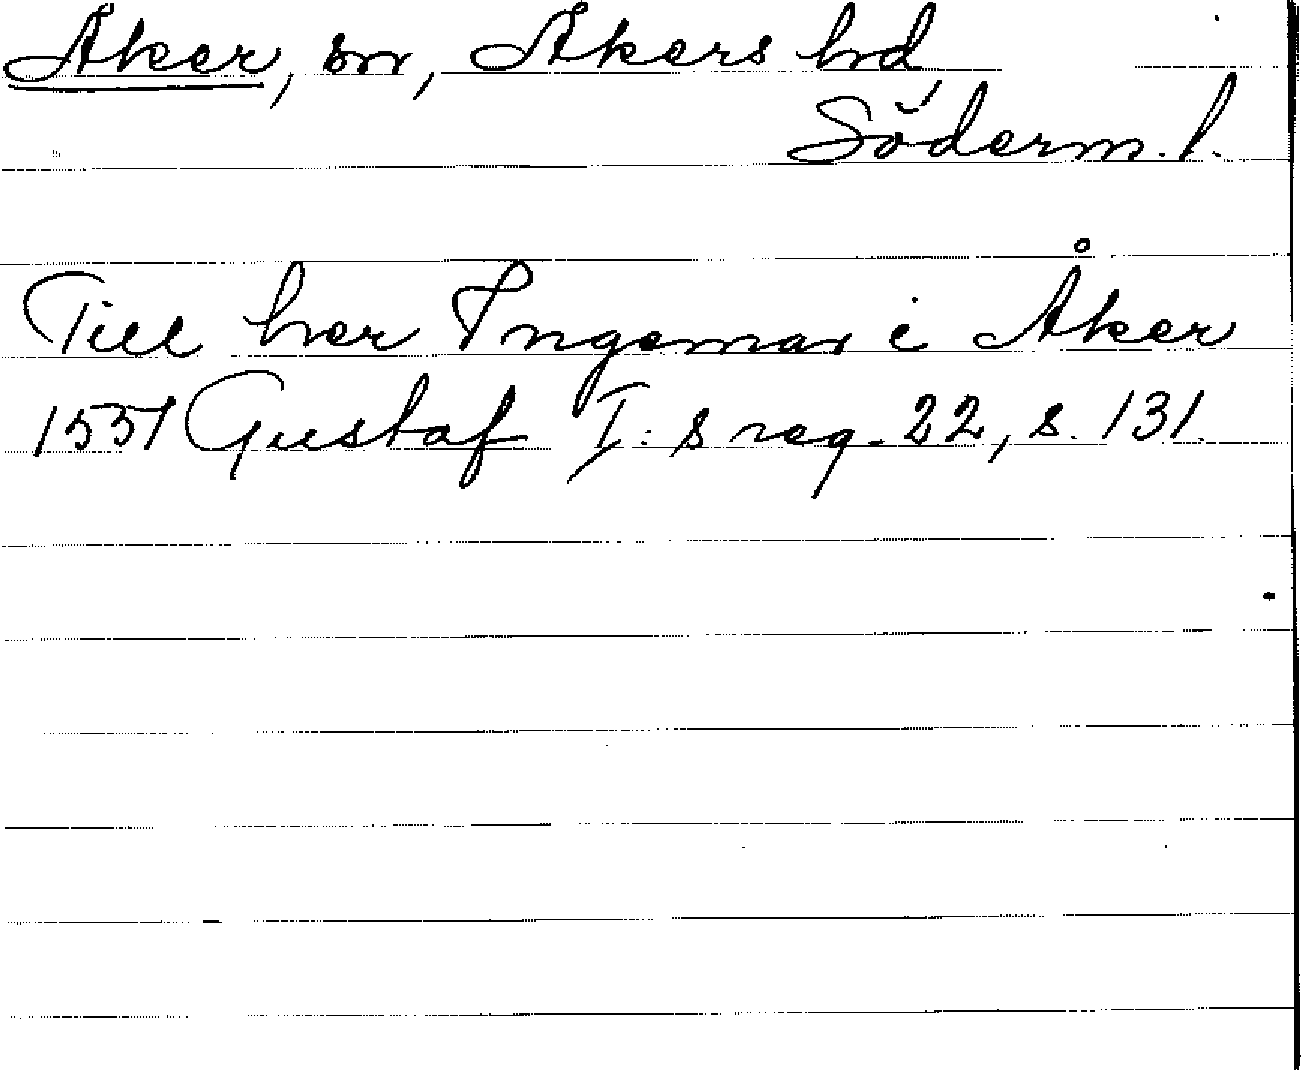 Åker, sn, Åkers hd
Söderm. l.
Till her Ingemar i Åker
1551 Gustaf I:s reg. 22, s. 131.